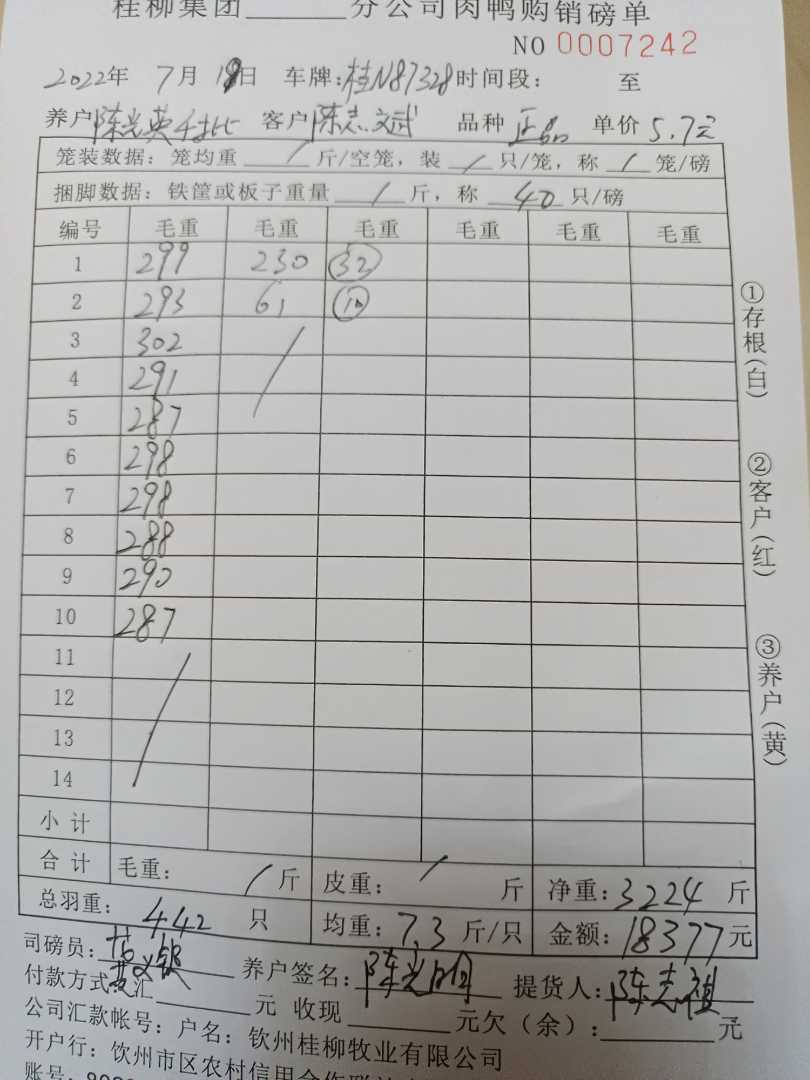 桂柳集团______分公司肉鸭购销磅单
NO 0007242
2022年 7月 18日 车牌:桂N87328时间段: 至
养户陈光英 客户陈志文武 品种 正品 单价 5.7元
笼装数据: 笼均重 / 斤/空笼, 装 / 只/笼, 称 / 笼/磅
捆脚数据: 铁筐或板子重量 / 斤, 称 40 只/磅
编号 毛重 毛重 毛重 毛重 毛重 毛重
1 299 230 32
2 293 61 10
3 302 /
4 291
5 287
6 298
7 298
8 288
9 290
10 287
11 /
12
13
14
小计
合计 毛重: / 斤 皮重: / 斤 净重:3224 斤
总羽重: 442 只 均重: 7.3 斤/只 金额:18377元
①存根(白)
②客户(红)
③养户(黄)
司磅员: 养户签名: 提货人:陈志祖
付款方式 汇______元 收现______元欠(余):______元
公司汇款帐号: 户名: 钦州桂柳牧业有限公司
开户行: 钦州市区农村信用合作联社
账号: